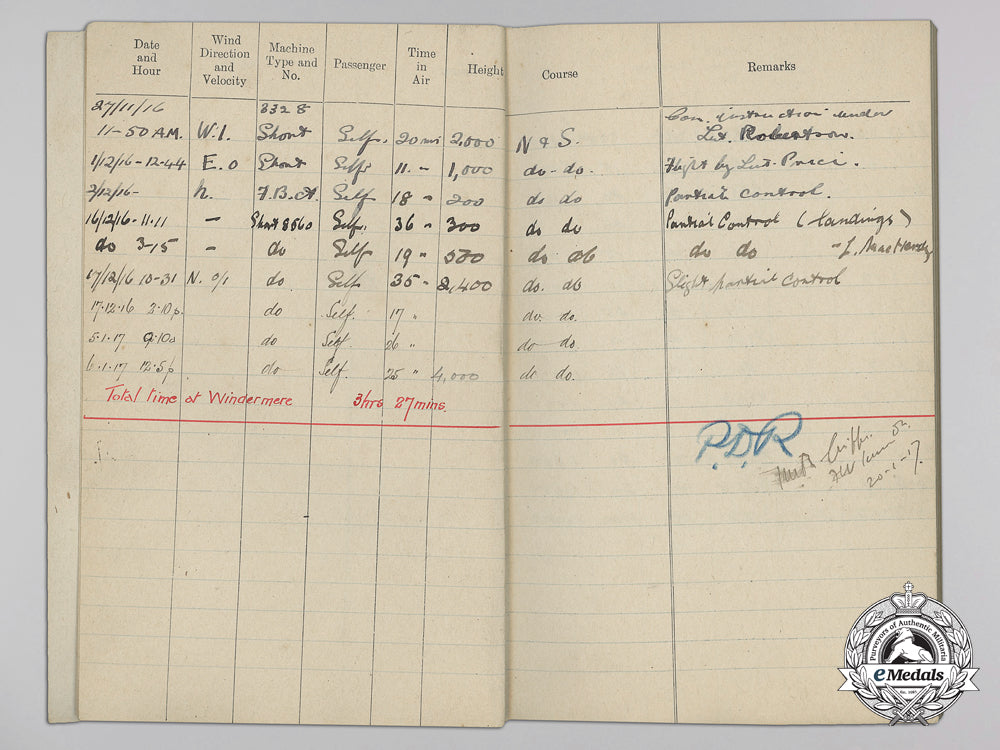 Date and Hour Wind Direction and Velocity Machine Type and No. Passenger Time in Air Height Course Remarks
27/11/16 3328
11-50 AM. W.1. Short Self. 20 mi 2,000 N & S. Con. instruction under Lt. Robertson.
1/12/16-12-44 E.0 Short Self 11. " 1,000 do - do. Flight by Lut.
2/12/16- N. F.B.A. Self 18 " 200 do do Partial control.
16/12/16-11.11 - Short 8560 Self. 36 " 300 do do Partial Control (landings)
do 3-15 - do Self 19 " 500 do do do do
17/12/16 10-31 N. 0/1 do. Self 35 " 2,400 do. do Slight partial control
17.12.16 2.10p. do Self. 17 " do. do.
5.1.17 do Self. 26 " do do.
6.1.17 12.5p do Self. 25 " 4,000 do do.
Total time at Windermere 3hrs 27mins.
P.D.R
20-1-17.
Purveyors of Authentic Militaria
eMedals